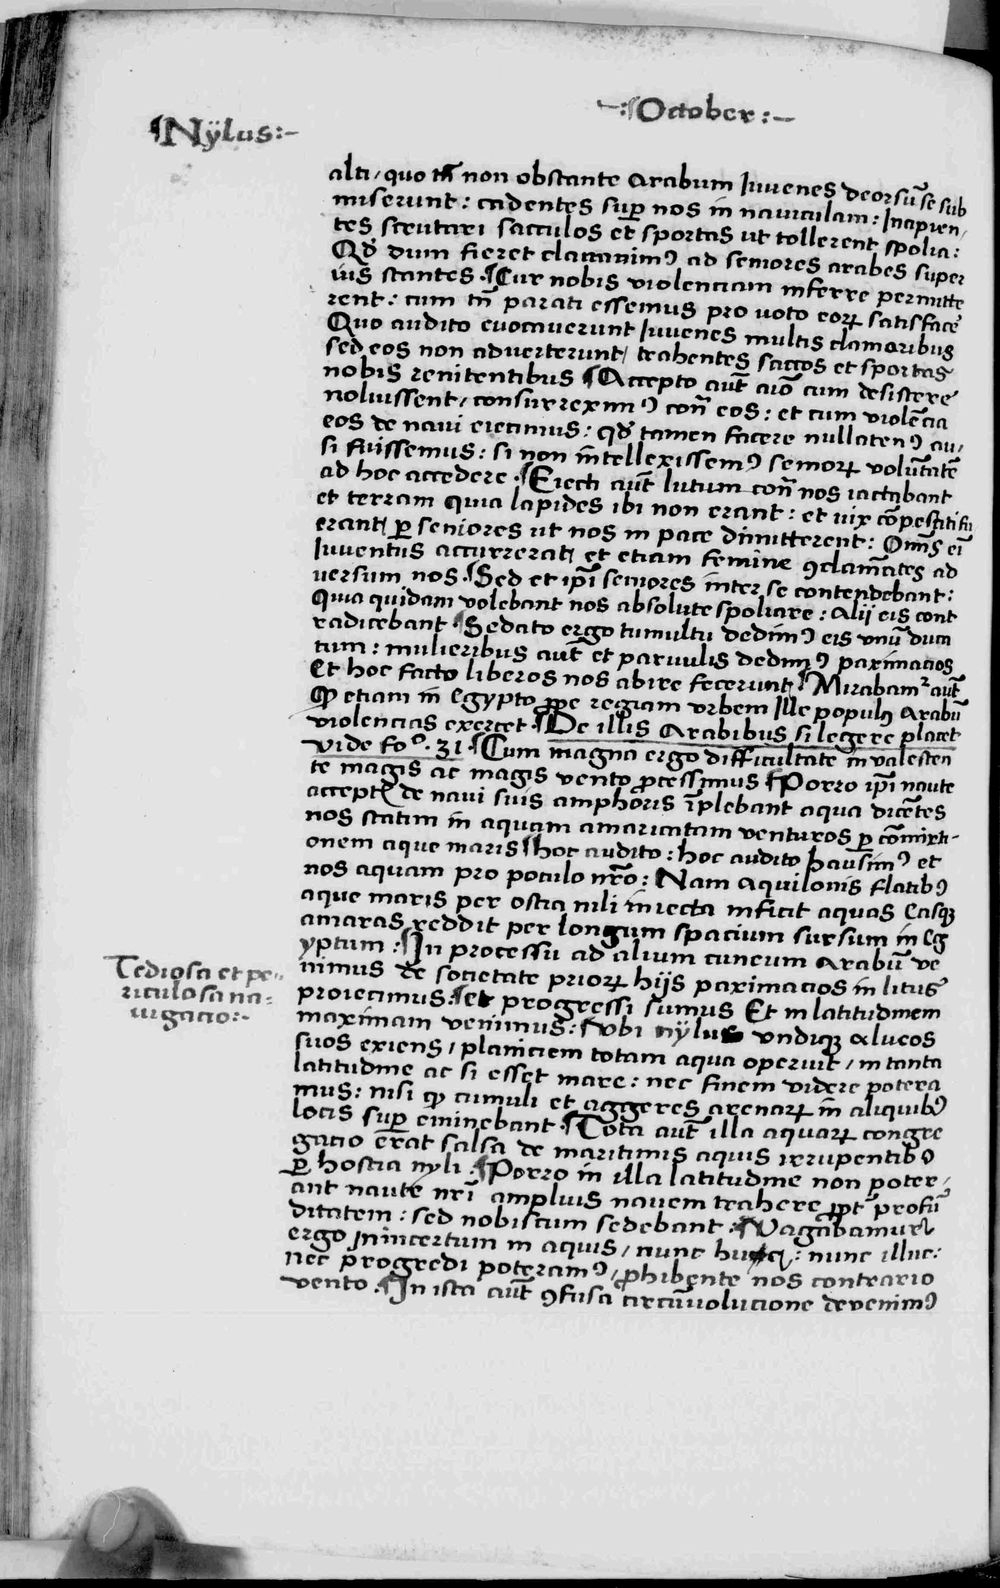 ¶Nÿlus:-
-:¶October:-
alti / quo tn̄ non obstante Arabum Iuvenes deorsū se sub
miserunt: cadentes sup̄ nos in naviculam: Incipien/
tes scrutari sacculos et sportas ut tollerent spolia:
Qd̄ dum fieret clamanimꝰ ad seniores arabes super
ius stantes ·¶Cur nobis violenciam inferre permitte
rent: cum tn̄ parati essemus pro voto eorꝝ satisface᷑
Quo audito evocaverunt Iuvenes multis clamoribus
sed eos non adverterunt / trahentes saccos et sportas
nobis renitentibus ¶Accepto aut̄ aīo cum desistere
noluissent / consurreximꝰ con̄ eos: et cum violēcia
eos de navi eiecimus: qd̄ tamen facere nullatenꝰ au/
si fuissemus: si non intellexissemꝰ seniorꝝ volūtatē
ad hoc accedere ·¶Eiecti aut̄ lutum con̄ nos iactabant
et terram Quia lapides ibi non erant: et vix cōpesciti fu
erant p̄ seniores ut nos in pace dimitterent: Om̄s eī
Iuventus accurrerat / et etiam femine ꝯclamātes ad
versum nos ·¶Sed et ip̄i seniores inter se contendebant:
Quia quidam volebant nos absolute spoliare: Alij eis cont
radicebant ¶Sedato ergo tumultu dedimꝰ eis unū duca
tum: mulieribus aut̄ et parvulis dedimꝰ paximacios
Et hoc facto liberos nos abire fecerunt ¶Mirabam᷑ aut̄
Qꝫ etiam in Egypto ꝓpe regiam urbem Ille populꝰ Arabū
violencias exercet ·¶De illis Arabibus si legere placet
vide foº. 31 ·¶Cum magna ergo difficultate invalescen
te magis ac magis vento ꝓcessimus ¶Porro ip̄i naute
acceptis de navi suis amphoris īplebant aqua dicētes
nos statim in aquam amaricatam venturos ꝑ cōmixti-
onem aque maris ¶hoc audito: hoc audito hausimꝰ et
nos aquam pro potulo nr̄o: Nam Aquilonis flatibꝰ
aque maris per ostia nili iniecta inficit aquas Easqꝫ
amaras reddit per longum spacium sursum in Eg
yptum: ¶In processu ad alium cuneum Arabū ve
nimus de societate priorꝝ hijs paximacios in litus
proiecimus: ¶et progressi sumus Et in latitudinem
maximam venimus: ¶ubi nÿlus undiqꝫ alveos
suos exiens / planiciem totam aqua operuit / in tanta
latitudine ac si esset mare: nec finem videre potera
mus: nisi qꝫ cumuli et aggeres arenarꝝ in aliquibꝰ
locis sup̄ eminebant ·¶Tota aut̄ illa aquarꝝ congre
gacio erat salsa de maritimis aquis irrupentibꝰ
ꝑ hostia nyli: ¶Porro in illa latitudine non poter/
ant naute nr̄i amplius navem trahere ꝓpt᷑ profū
ditatem: sed nobiscum sedebant: ¶Vagabamur
ergo in incertum in aquis / nunc huc: nunc illuc:
nec progredi poteramꝰ / ꝓhibente nos contrario
vento ·¶In ista aut̄ ꝯfusa circūvolucione devenimꝰ
Tediosa et pe-
riculosa na=
vigacio:-